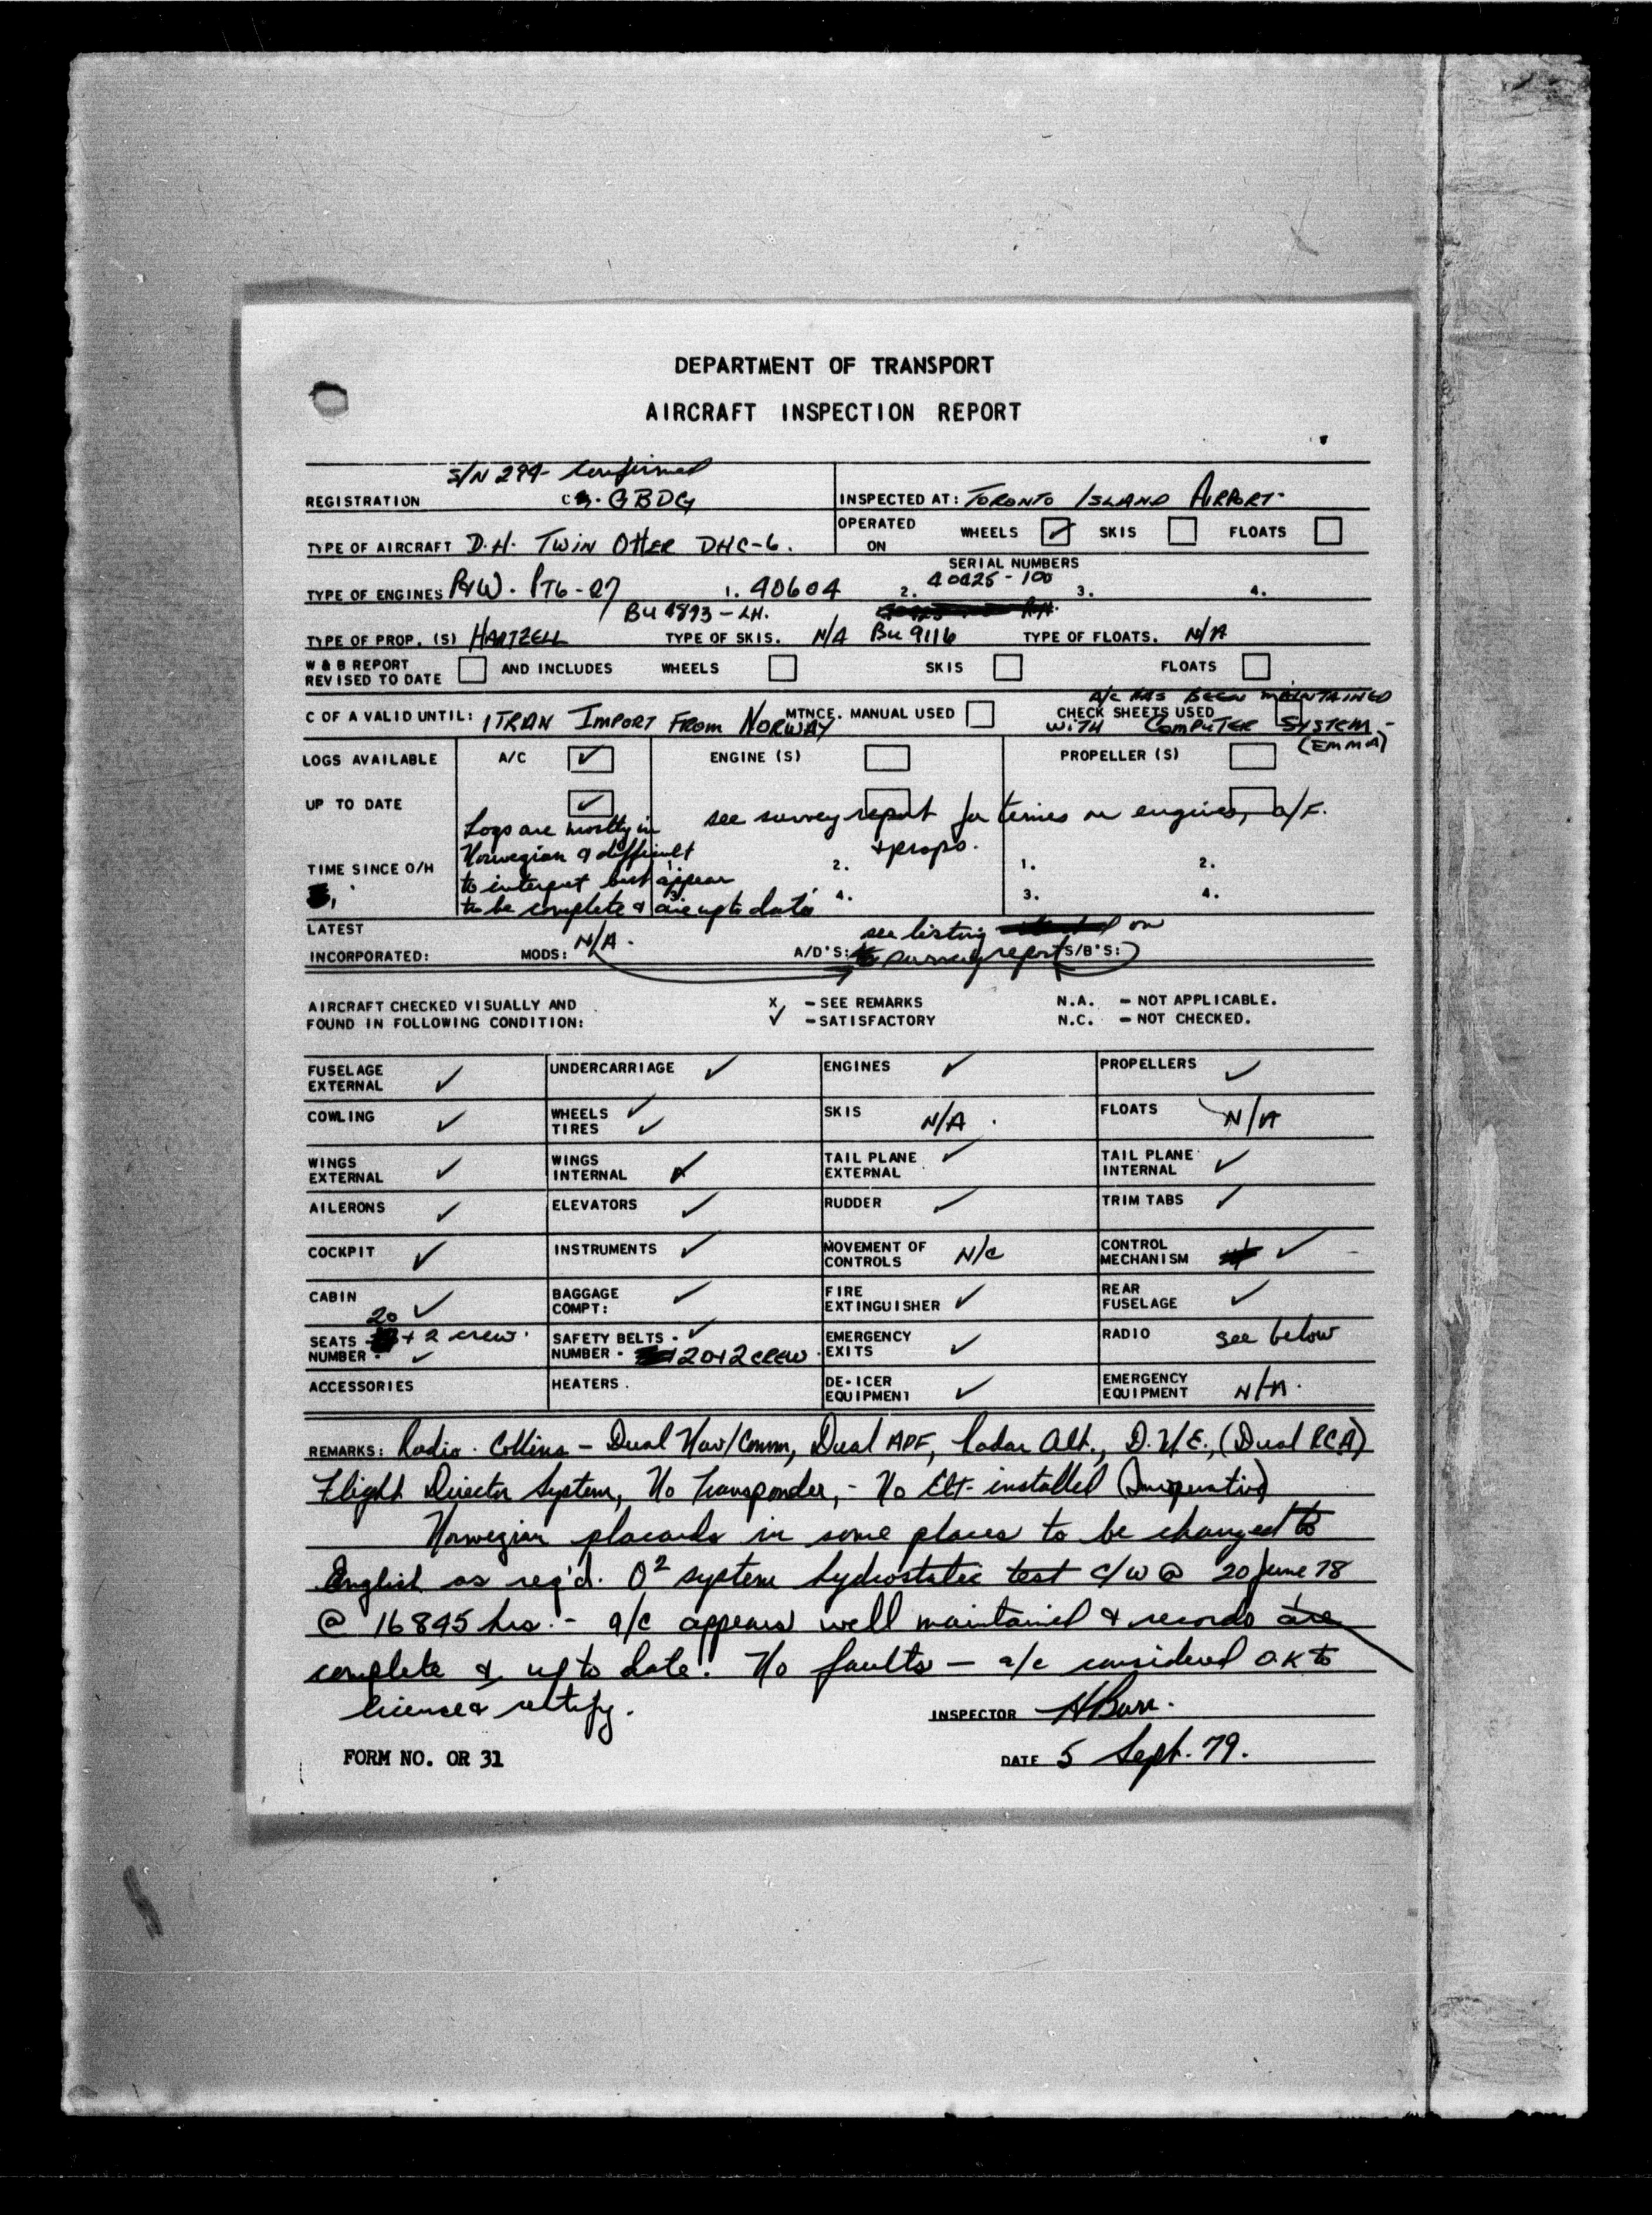 DEPARTMENT OF TRANSPORT
AIRCRAFT INSPECTION REPORT
S/N 294- Confirmed
REGISTRATION GBDG INSPECTED AT: TORONTO ISLAND AIRPORT
TYPE OF AIRCRAFT D.H. TWIN OTTER DHC-6. OPERATED ON WHEELS ✓ SKIS FLOATS
SERIAL NUMBERS
TYPE OF ENGINES P&W. PT6-27 1. 40604 2. 40425-100 3. 4.
BU 4893-LH. RH.
TYPE OF PROP. (S) HARTZELL TYPE OF SKIS. N/A BU 9116 TYPE OF FLOATS. N/A
W & B REPORT REVISED TO DATE AND INCLUDES WHEELS SKIS FLOATS
A/C HAS BEEN MAINTAINED
C OF A VALID UNTIL: IMPORT FROM NORWAY MTNCE. MANUAL USED CHECK SHEETS USED
WITH COMPUTER SYSTEM -
(EMMA)
LOGS AVAILABLE A/C ✓ ENGINE (S) PROPELLER (S)
UP TO DATE ✓
see survey report for times on engines, a/f.
+ props.
Logs are mostly in
Norwegian & difficult
to interpret but appear
to be complete & are up to date
TIME SINCE O/H 2. 1. 2.
3. 4. 3. 4.
LATEST
INCORPORATED: MODS: N/A. A/D'S: see listing on
survey report S/B'S:
AIRCRAFT CHECKED VISUALLY AND X - SEE REMARKS N.A. - NOT APPLICABLE.
FOUND IN FOLLOWING CONDITION: ✓ - SATISFACTORY N.C. - NOT CHECKED.
FUSELAGE EXTERNAL ✓ UNDERCARRIAGE ✓ ENGINES ✓ PROPELLERS ✓
COWLING ✓ WHEELS ✓ TIRES ✓ SKIS N/A. FLOATS N/A
WINGS EXTERNAL ✓ WINGS INTERNAL ✓ TAIL PLANE EXTERNAL ✓ TAIL PLANE INTERNAL ✓
AILERONS ✓ ELEVATORS ✓ RUDDER ✓ TRIM TABS ✓
COCKPIT ✓ INSTRUMENTS ✓ MOVEMENT OF CONTROLS N/C CONTROL MECHANISM ✓
CABIN ✓ BAGGAGE COMPT: ✓ FIRE EXTINGUISHER ✓ REAR FUSELAGE ✓
SEATS NUMBER - 20 + 2 crew. ✓ SAFETY BELTS - ✓ NUMBER - 20+2 CREW. EMERGENCY EXITS ✓ RADIO see below
ACCESSORIES HEATERS. DE-ICER EQUIPMENT ✓ EMERGENCY EQUIPMENT N/A.
REMARKS: Radio. Collins - Dual Nav/Comm, Dual ADF, Radar Alt., D.M.E., (Dual RCA)
Flight Director System, No Transponder, - No Elt- installed (Inoperative)
Norwegian placards in some places to be changed to
English as req'd. O2 system hydrostatic test c/w @ 20 June 78
@ 16845 hrs. - a/c appears well maintained & records are
complete & up to date. No faults - a/c considered OK to
license & certify.
INSPECTOR H Burr.
FORM NO. OR 31 DATE 5 Sept. 79.